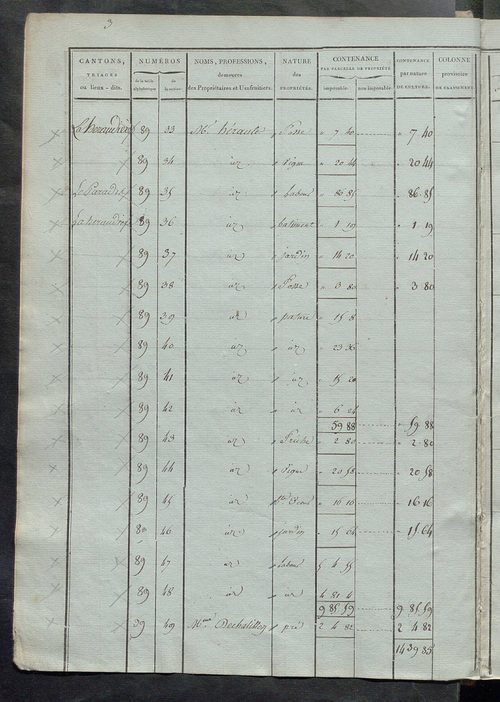 3
CANTONS, TRIAGES ou lieux-dits.
NUMÉROS
de la table alphabétique
de la section
NOMS, PROFESSIONS, demeures des Propriétaires et Usufruitiers.
NATURE des PROPRIÉTÉS.
CONTENANCE PAR PARCELLE DE PROPRIÉTÉ
imposable.
non imposable.
CONTENANCE par nature DE CULTURE.
COLONNE provisoire DE CLASSEMENT.
89 33 Mr hérault fosse " 7 40 " 7 40
89 34 id vigne " 20 44 " 20 44
Le Paradis 89 35 id labour " 86 85 " 86 85
89 36 id batiment " 1 19 " 1 19
89 37 id jardin " 14 20 " 14 20
89 38 id fosse " 3 80 " 3 80
89 39 id pature " 15 8
89 40 id id " 23 36
89 41 id id " 15 20
89 42 id id " 6 24
59 88 " 59 88
89 43 id friche " 2 80 " 2 80
89 44 id vigne " 20 58 " 20 58
89 45 id " 16 16 " 16 16
89 46 id jardin " 15 64 " 15 64
89 47 id labour 5 4 55
89 48 id id 4 81 4
9 85 59 9 85 59
89 49 pré 2 4 82 2 4 82
14 39 85